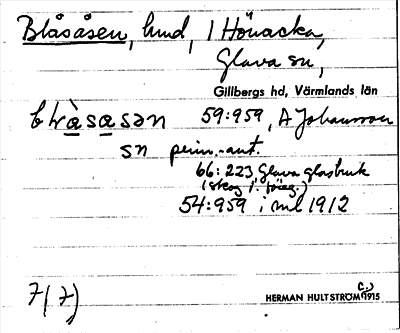 Blåsåsen, hmd, 1 Hönacka,
Glava sn,
Gillbergs hd, Värmlands län
59:959, A Johansson
sn perm.-ant.
66:223 Glava glasbruk
(skog i töreg.)
54:959 i ml 1912
7(7)
HERMAN HULTSTRÖM C:) 1915